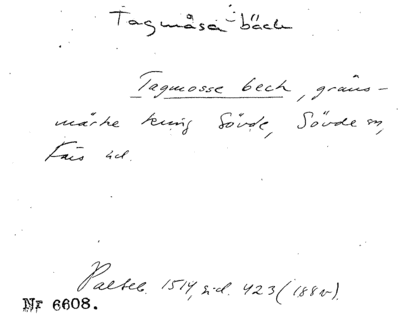 Tagmåsa-bäck
Tagmosse beck, gräns-
märke kring Sövde, Sövde sn,
Färs hd.
Palteb. 1514, sid. 423 (188v).
Nr 6608.